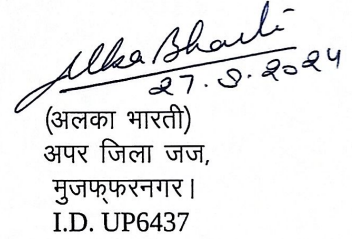 Alka Bharti
27.9.2024
(अलका भारती)
अपर जिला जज,
मुजफ्फरनगर।
I.D. UP6437